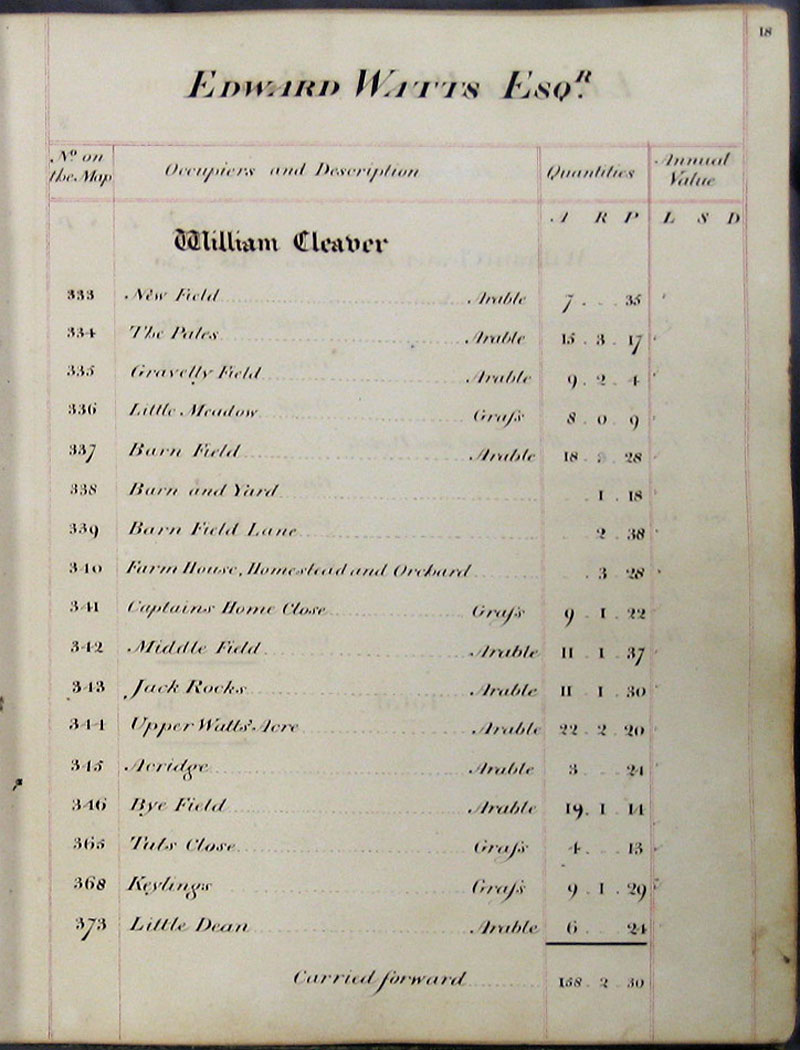 18
EDWARD WATTS ESQR.
No on the Map Occupiers and Description Quantities Annual Value
A R P L S D
William Cleaver
333 New Field Arable 7 . . 35
334 The Pales Arable 15 . 3 . 17
335 Gravelly Field Arable 9 . 2 . 4
336 Little Meadow Graſs 8 . 0 . 9
337 Barn Field Arable 18 . 3 . 28
338 Barn and Yard . 1 . 18
339 Barn Field Lane 2 . 38
340 Farm House, Homestead and Orchard . 3 . 28
341 Captains Home Close Graſs 9 . 1 . 22
342 Middle Field Arable 11 . 1 . 37
343 Jack Rocks Arable 11 . 1 . 30
344 Upper Watts' Acre Arable 22 . 2 . 20
345 Acridge Arable 3 . . 24
346 Bye Field Arable 19 . 1 . 14
365 Tuts Close Graſs 4 . . 13
368 Keylings Graſs 9 . 1 . 29
373 Little Dean Arable 6 . . 24
Carried forward 158 . 2 . 30